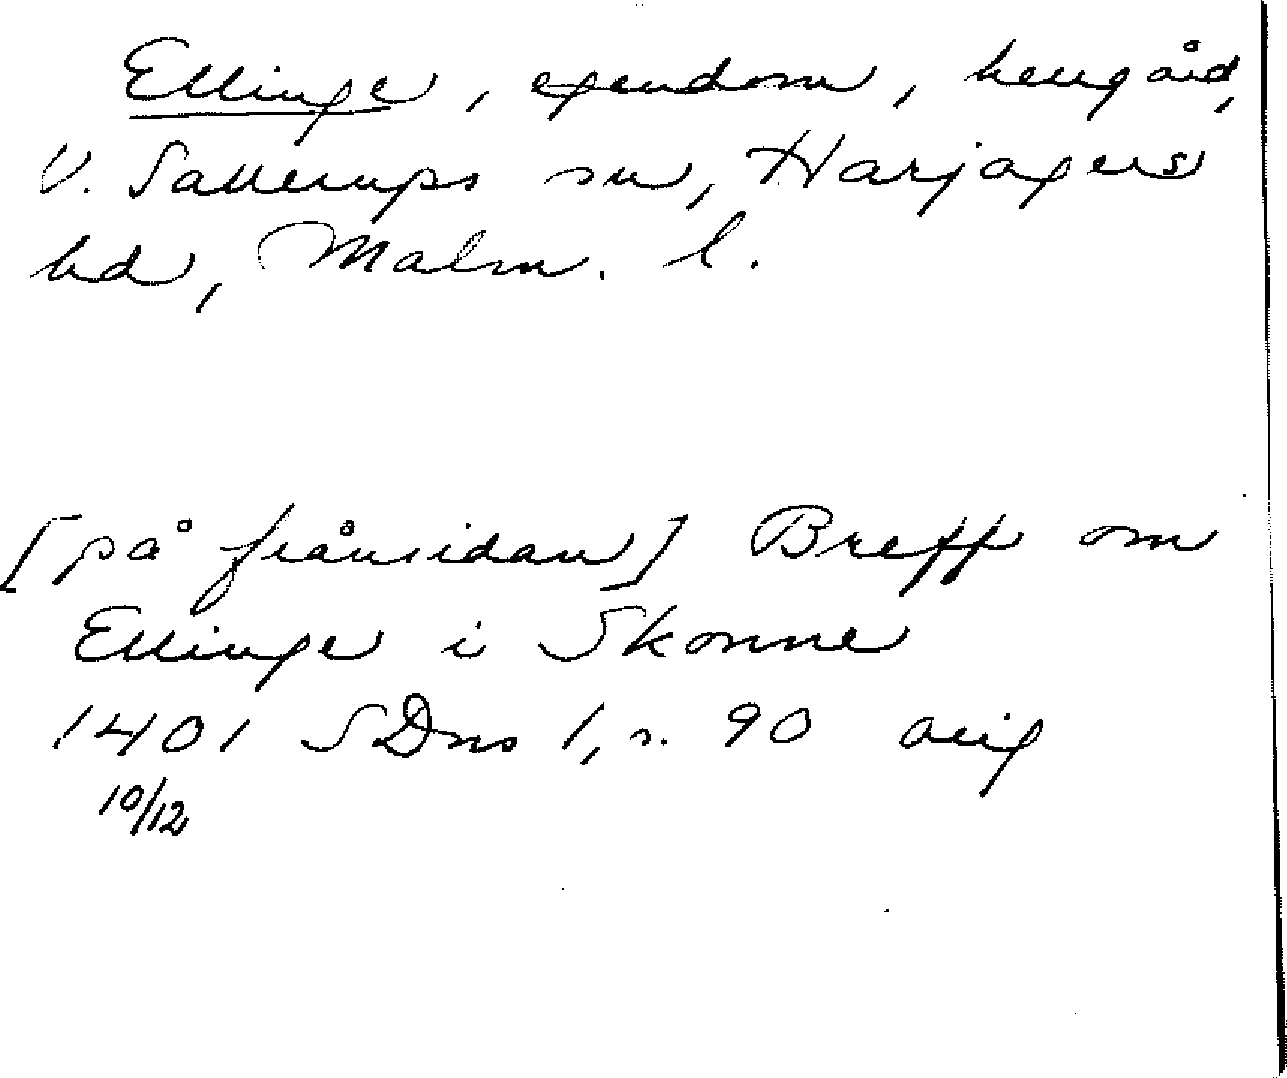 Ellinge, egendom, herrgård,
V. Sallerups sn, Harjagers
hd, Malm. l.
[på frånsidan] Breff om
Ellinge i Skonne
1401 SDns 1, s. 90 orig
10/12